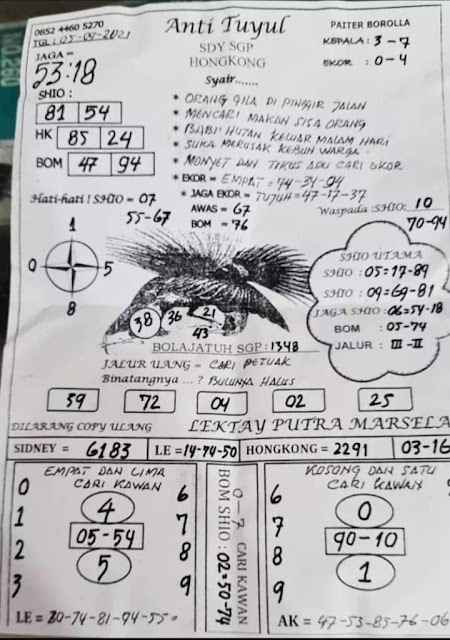 0852 4460 5270
TGL : 05-09-2021
Anti Tuyul
PAITER BOROLLA
SDY SGP
HONGKONG
KEPALA : 3-7
EKOR : 0-4
JAGA =
53:18
Syair.......
SHIO :
81 54
HK 85 24
BOM 47 94
* ORANG GILA DI PINGGIR JALAN
* MENCARI MAKAN SISA ORANG
* BABI HUTAN KELUAR MALAM HARI
* SUKA MERUSAK KEBUN WARGA
* MONYET DAN TIKUS ADU CARI EKOR
* EKOR = EMPAT = 74-34-94
* JAGA EKOR = TUJUH = 47-17-37
Hati-hati ! SHIO = 07
55-67
AWAS = 67
BOM = 76
Waspada :SHIO: 10
70-94
1
0 5
8
SHIO UTAMA
SHIO : 05=17-89
SHIO : 09=69-81
JAGA SHIO : 06=54-18
BOM : 05-74
JALUR : III-II
38 36 21
43
BOLAJATUH SGP : 1348
JALUR UANG = CARI PETUAK
Binatangnya ... ? BULUNYA HALUS
59 72 04 02 25
DILARANG COPY ULANG
LEKTAY PUTRA MARSELA
SIDNEY = 6183 LE =14-74-50 HONGKONG = 2291 03-16
EMPAT DAN LIMA
CARI KAWAN
0 6
4
1 7
05-54
2 8
5
3 9
LE = 20-74-81-94-55=
BOM SHIO : 02=50-74
0-7 CARI KAWAN
KOSONG DAN SATU
CARI KAWAN
6
0
7
90-10
8
1
9
AK = 47-53-85-76-06